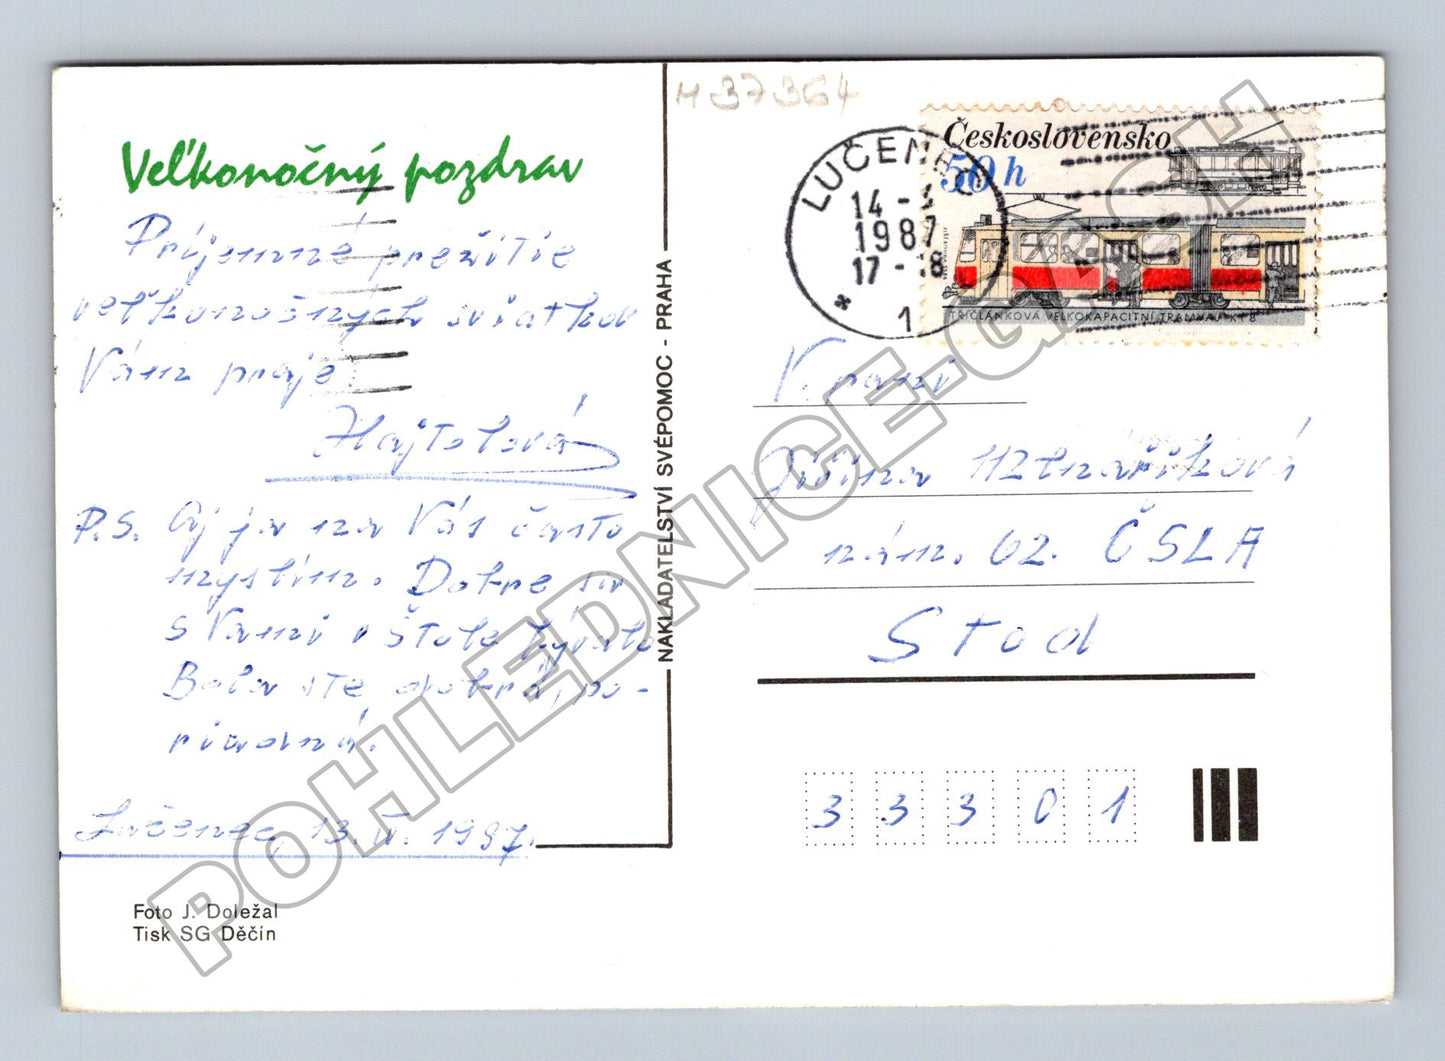 Veľkonočný pozdrav
Príjemné prežitie
veľkonočných sviatkov
Vám praje
Hajtolová
P.S. Aj ja na Vás často
myslím. Dobre sa
s Vami v Štole bývalo
Bola ste dobrá, po-
riadná.
Lučenec, 13. IV. 1987.
Foto J. Doležal
Tisk SG Děčín
NAKLADATELSTVÍ SVÉPOMOC - PRAHA
M 37364
LUČENEC
14 -
1987
17 - 18
* 1
Československo
50 h
TŘÍČLÁNKOVÁ VELKOKAPACITNÍ TRAMVAJ KT 8
V. pani
Jiřina Mlnaříková
nám. ČSLA
Stod
3 3 3 0 1
POHLEDNICE-GASH